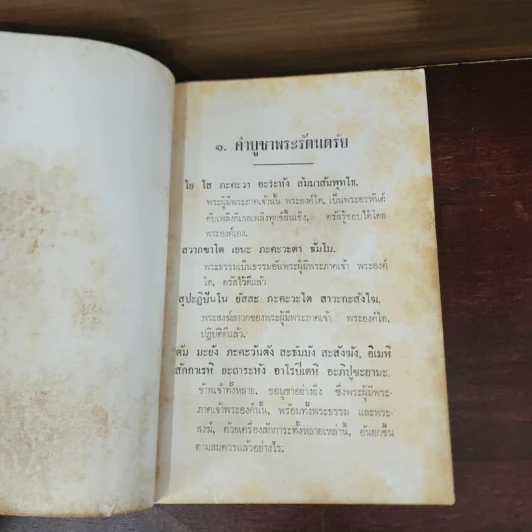 ๑. คำบูชาพระรัตนตรัย
โย โส ภะคะวา อะระหัง สัมมาสัมพุทโธ.
พระผู้มีพระภาคเจ้านั้น พระองค์ใด, เป็นพระอรหันต์
ดับเพลิงกิเลสเพลิงทุกข์สิ้นเชิง, ตรัสรู้ชอบได้โดย
พระองค์เอง.
สวากขาโต เยนะ ภะคะวะตา ธัมโม.
พระธรรมเป็นธรรมอันพระผู้มีพระภาคเจ้า พระองค์
ใด, ตรัสไว้ดีแล้ว
สุปะฏิปันโน ยัสสะ ภะคะวะโต สาวะกะสังโฆ.
พระสงฆ์สาวกของพระผู้มีพระภาคเจ้า พระองค์ใด,
ปฏิบัติดีแล้ว.
ตัม มะยัง ภะคะวันตัง สะธัมมัง สะสังฆัง, อิเมหิ
สักกาเรหิ ยะถาระหัง อาโรปิเตหิ อะภิปูชะยามะ.
ข้าพเจ้าทั้งหลาย, ขอบูชาอย่างยิ่ง ซึ่งพระผู้มีพระ-
ภาคเจ้าพระองค์นั้น, พร้อมทั้งพระธรรม และพระ-
สงฆ์, ด้วยเครื่องสักการะทั้งหลายเหล่านี้, อันยกขึ้น
ตามสมควรแล้วอย่างไร.